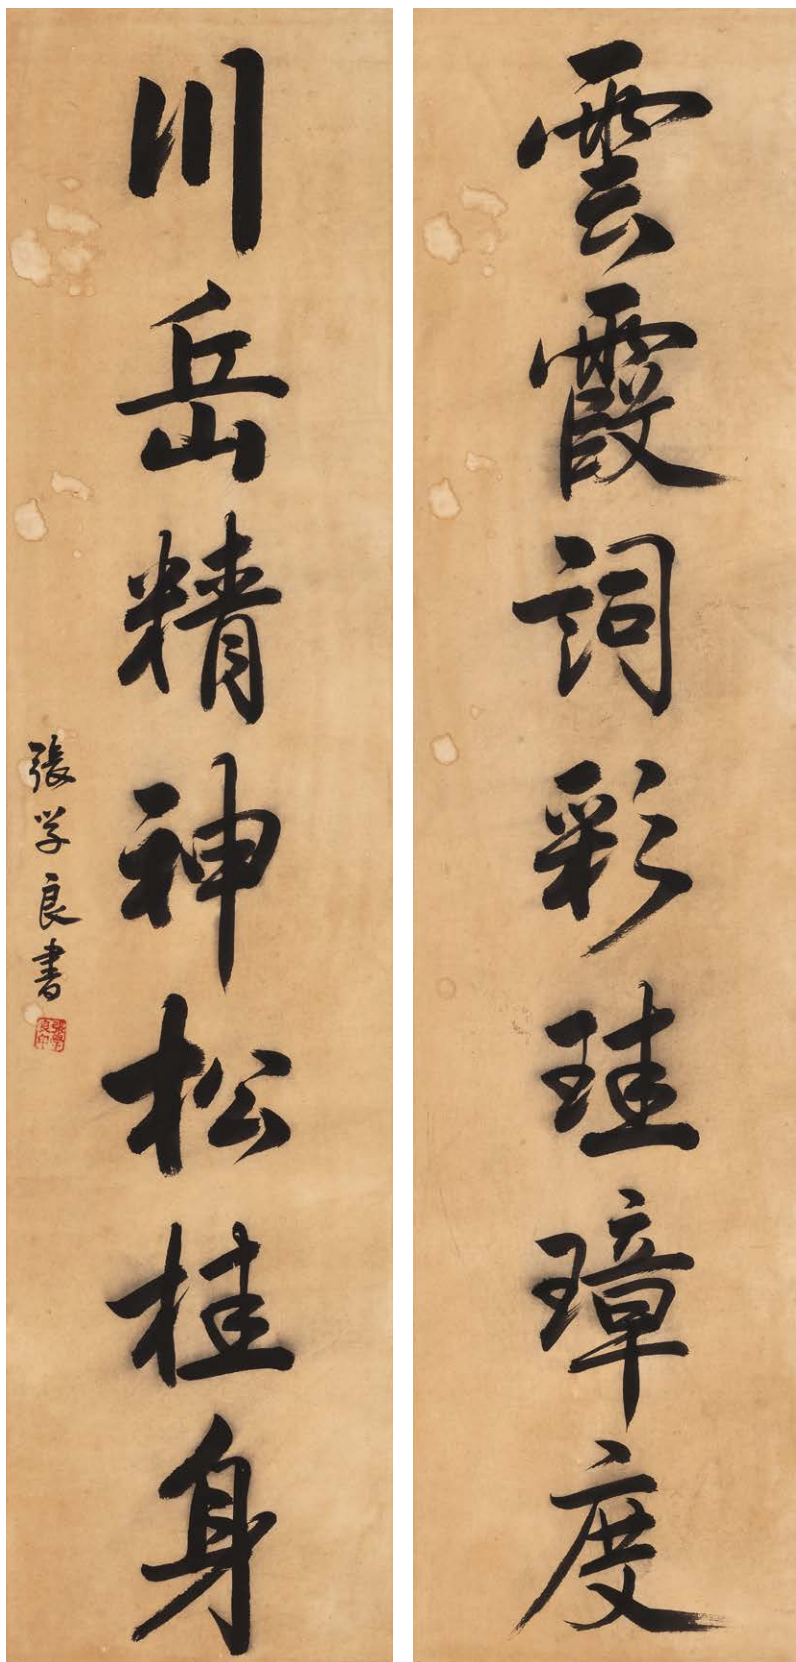 雲霞詞彩珪璋度
川岳精神松桂身
張学良書
張學良印